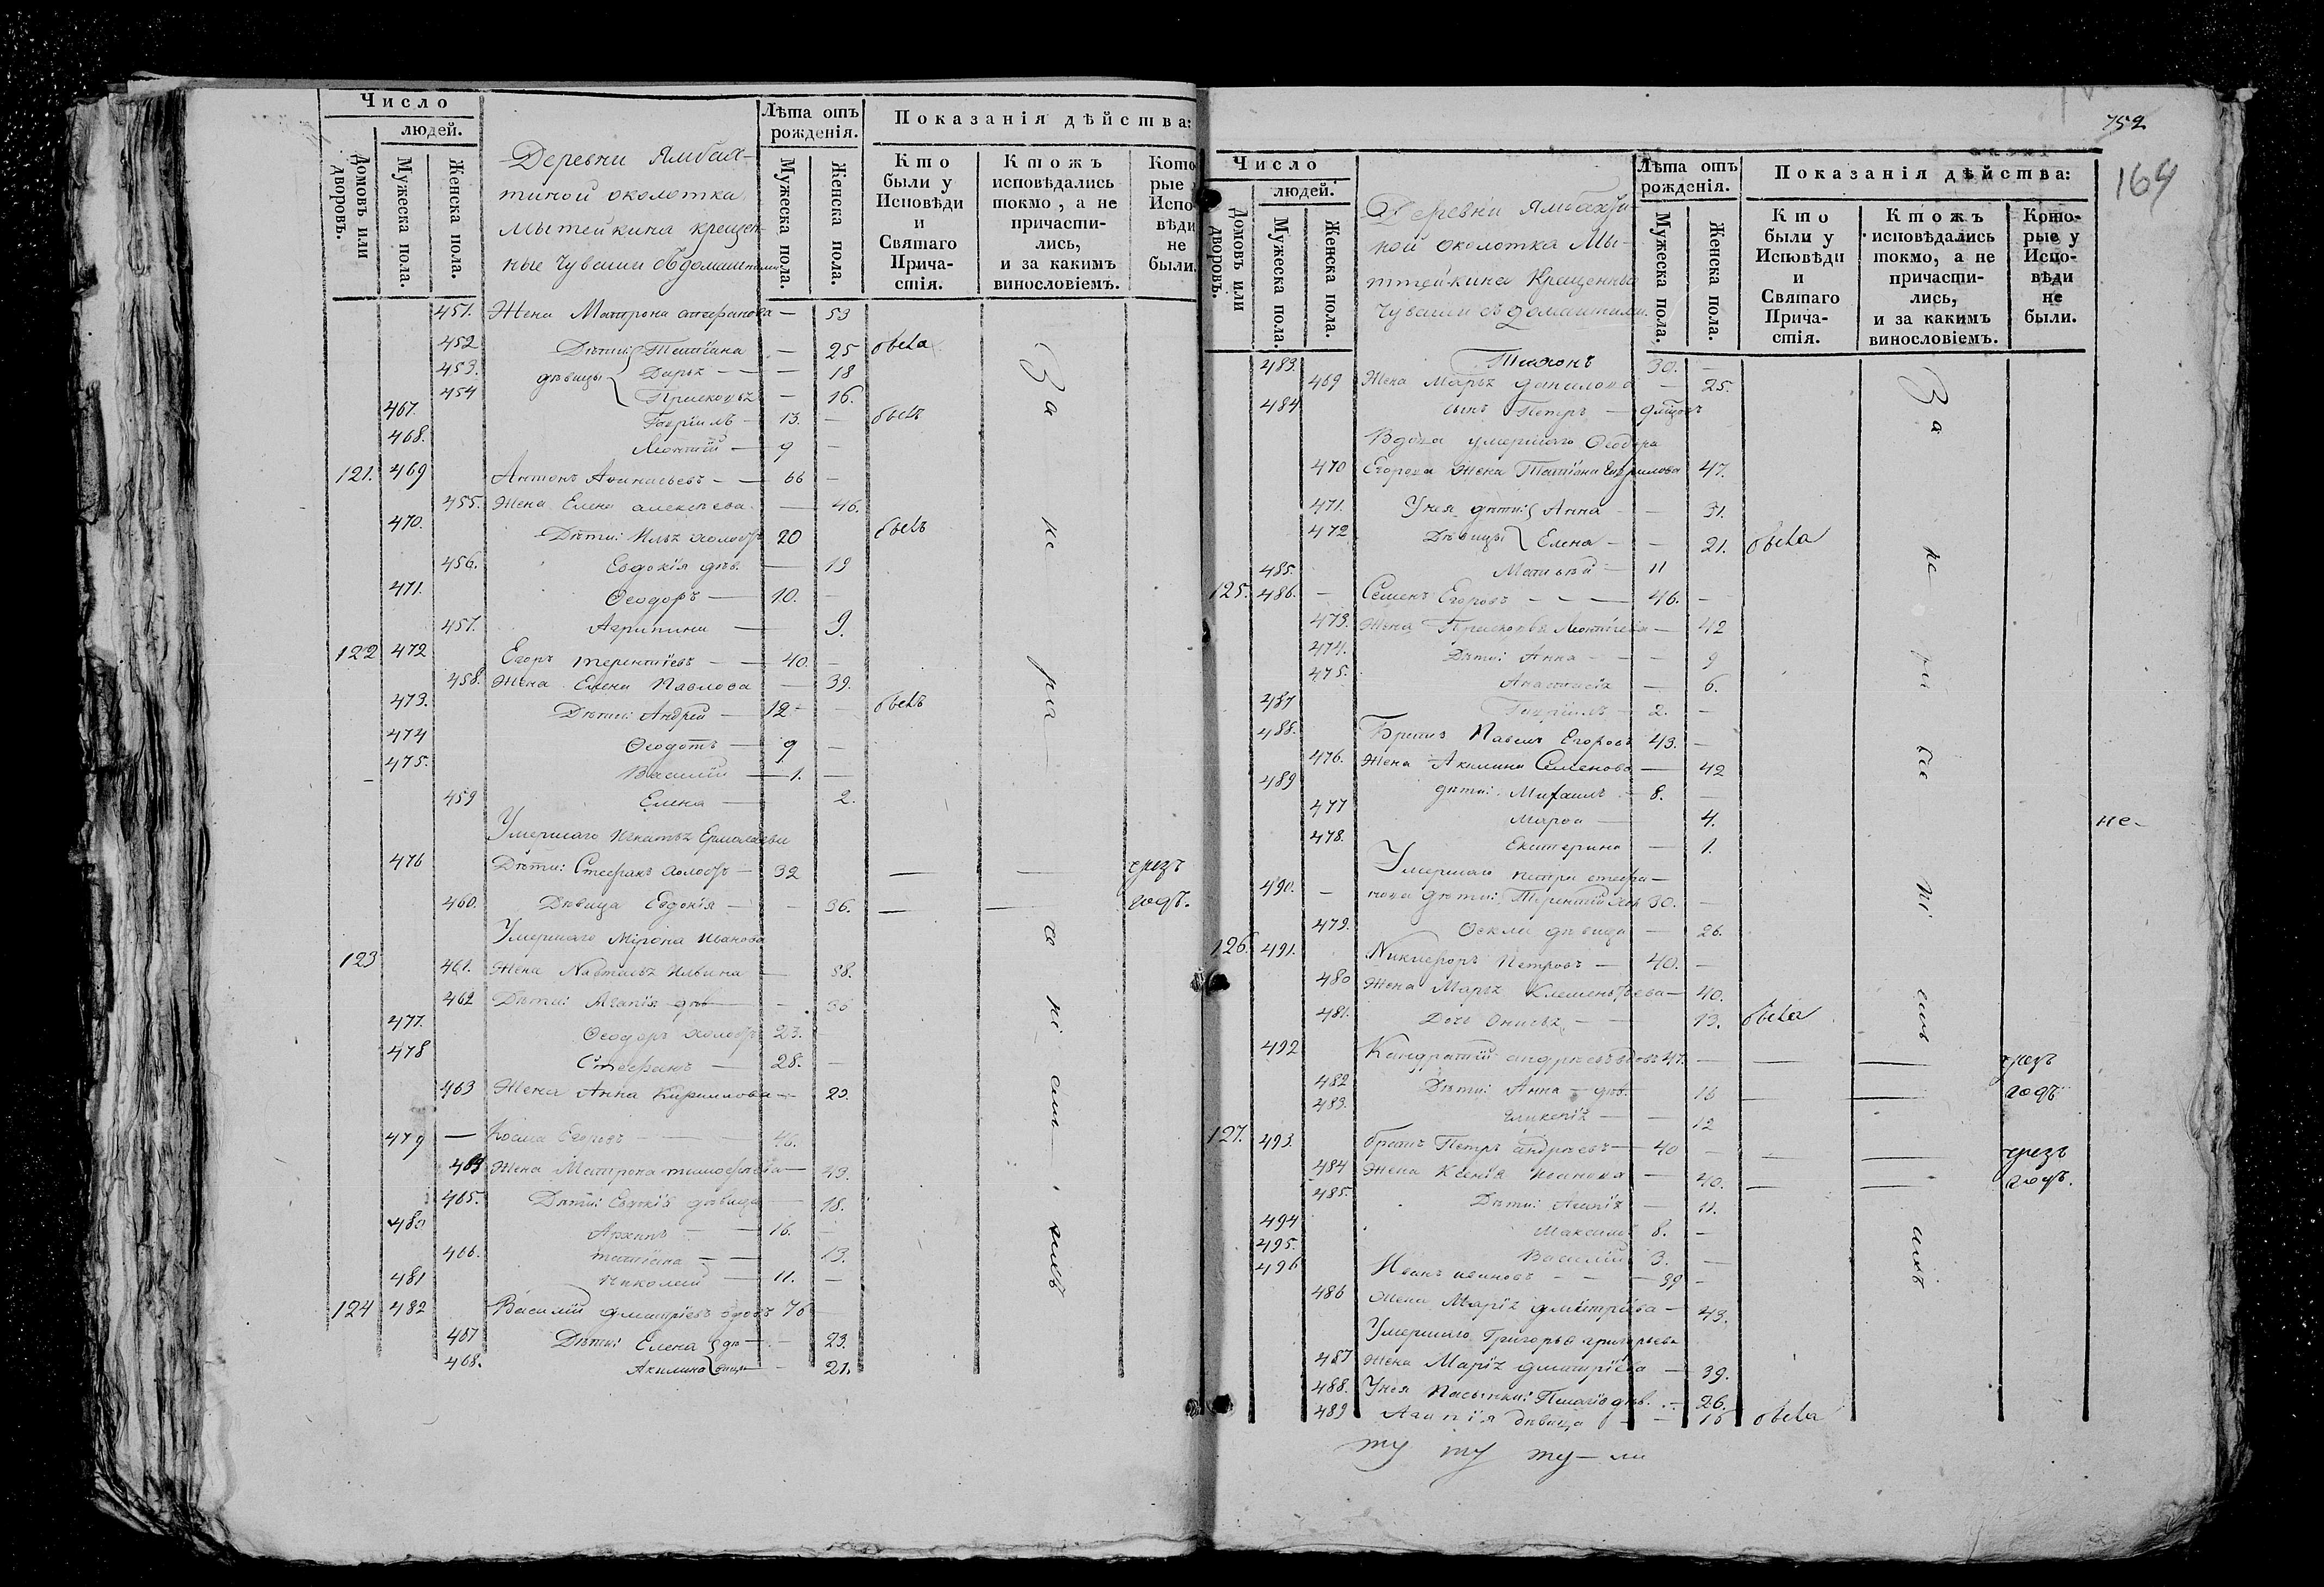 Число
людей.
Домовъ или дворовъ.
Мужеска пола.
Женска пола.
Деревни Ямбах-
тиной околотка
Мытейкина крещен-
ные Чуваши съ домашними
Лѣта отъ рожденія.
Мужеска пола.
Женска пола.
Показанія дѣйства:
Кто были у Исповѣди и Святаго Причастія.
Ктожъ исповѣдались токмо, а не причастились, и за какимъ винословіемъ.
Которые Испо-вѣди не были.
451. Жена Матрона Стефанова — 53
452 Дѣти: Татіана — 25 была
453. дѣвицы Дарья — 18
454 Прасковья — 16.
467. Гавріилъ — 13. — былъ
468. Леонтій — 9 —
121. 469 Антонъ Афанасьевъ — 66 —
455. Жена Елена Алексеева — 46.
470. Дѣти: Илья холостъ 20 былъ
456. Евдокія дѣв. — 19
471. Ѳеодоръ — 10. —
457. Агрипина — 9.
122 472 Егоръ Терентіевъ — 40. —
458. Жена Елена Павлова — 39.
473. Дѣти: Андрей — 12 — былъ
474 Ѳеодотъ — 9 —
475. Василій — 1. —
459 Елена — 2.
Умершаго Игнатья Ермолаева
476 Дѣти: Стефанъ холостъ — 32 — — чрезъ
460. Дѣвица Евдокія — 36. — — годъ.
Умершаго Мірона Иванова
123 461. Жена Настасья Ильина — 58.
462 Дѣти: Агапія дѣв —
477. Ѳеодоръ холостъ 23.
478 Стефанъ — 28. —
463 Жена Анна Кириллова — 23.
479 — Косма Егоровъ —
464 Жена Матрона Тимофеева —
465. Дѣти: Евдокія дѣвица — 18.
480 Архипъ — 16. —
466. Татіана — 13.
481 Николай — 11. —
124 482 Василій Дмитріевъ вдовъ 76
467 Дѣти: Елена дѣ- — 23.
468. Акилина вицы — 21.
За не ра
752
164
Число
людей.
Домовъ или дворовъ.
Мужеска пола.
Женска пола.
Деревни Ямбахти-
ной околотка Мы-
тейкина Крещенныя
Чуваши съ домашними.
Лѣта отъ рожденія.
Мужеска пола.
Женска пола.
Показанія дѣйства:
Кто были у Исповѣди и Святаго Причастія.
Ктожъ исповѣдались токмо, а не причастились, и за какимъ винословіемъ.
Которые у Исповѣди не были.
483. 30. —
469 Жена Марья Данилова — 25.
484 сынъ Петръ —
Вдова умершаго Ѳеодора
470 Егорова жена Татіана Гаврилова 47.
471. У нея дѣти: Анна — 31.
472 Дѣвицы Елена — 21. была
485. Матвѣй — 11
125. 486. — Семенъ Егоровъ — 46. —
473. Жена Прасковья Леонтіева — 42
474. Дѣти: Анна — 9
475. Анастасія — 6.
487 Гавріилъ — 2. —
488. Братъ Павелъ Егоровъ 43. —
476. Жена Акилина Семенова — 42
489 дѣти: Михаилъ — 8. —
477 Марѳа — 4.
478. Екатерина — 1.
Умершаго Петра Стефа-
490. — нова дѣти: Терентій хол. 30. —
479. Ѳекла дѣвица — 26.
126. 491. Никифоръ Петровъ — 40. —
480 Жена Марья Клементьева — 40.
481. Дочь Онисья — 13. была
492 Кондратій Андреевъ вдовъ 47. — — — чрезъ
482 Дѣти: Анна дѣв. — 16 — — годъ
483. Гликерія — 12
127. 493. братъ Петръ Андреевъ — 40 — — — чрезъ
484 Жена Ксенія Иванова — 40. — — годъ.
485. Дѣти: Агапія — 11.
494 Максимъ 8. —
495. Василій 3. —
496 Иванъ Ивановъ — 39 —
486 Жена Марія Дмитріева — 43.
Умершаго Григорья Григорьева
487 Жена Марія Дмитріева — 39.
488. У нея пасынки: дѣв. — 26.
489 Агапія дѣвица — 16 была
За не ра
не-